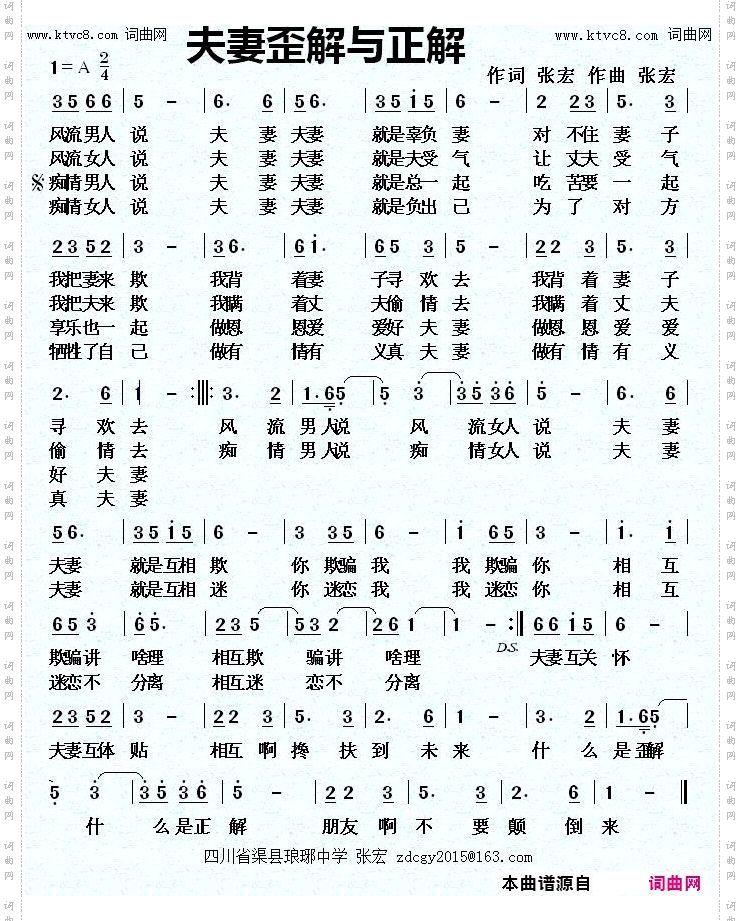 www.ktvc8.com 词曲网
夫妻歪解与正解
www.ktvc8.com 词曲网
1=A 2/4
作词 张宏 作曲 张宏
3 5 6 6 | 5 - | 6. 6 | 5 6. | 3 5 1 5 | 6 - | 2 2 3 | 5. 3 |
风流男人 说 夫 妻 夫妻 就是辜负 妻 对 不住 妻 子
风流女人 说 夫 妻 夫妻 就是夫受 气 让 丈夫 受 气
痴情男人 说 夫 妻 夫妻 就是总一 起 吃 苦要 一 起
痴情女人 说 夫 妻 夫妻 就是负出 己 为 了 对 方
2 3 5 2 | 3 - | 3 6. | 6 1. | 6 5 3 | 6 - | 2 2 3 | 5. 3 |
我把妻来 欺 我背 着妻 子寻 欢 去 我背 着 妻 子
我把夫来 欺 我瞒 着丈 夫偷 情 去 我瞒 着 丈 夫
享乐也一 起 做恩 恩爱 爱好 夫 妻 做恩 恩 爱 爱
牺牲了自 己 做有 情有 义真 夫 妻 做有 情 有 义
2. 6 | 1 - :||: 3. 2 | 1. 6 5 | 5 3 | 3 5 3 6 | 5 - | 6. 6 |
寻 欢 去 风 流 男 人说 风 流女人 说 夫 妻
偷 情 去 痴 情 男 人说 痴 情女人 说 夫 妻
好 夫 妻
真 夫 妻
5 6. | 3 5 1 5 | 6 - | 3 3 5 | 6 - | 1 6 5 | 3 - | 1. 1 |
夫妻 就是互相 欺 你 欺骗 我 我 欺骗 你 相 互
夫妻 就是互相 迷 你 迷恋 我 我 迷恋 你 相 互
6 5 3 | 6 5. | 2 3 5 | 5 3 2 | 2 6 1 | 1 - :|| 6 6 1 5 | 6 - |
D.S.
欺骗讲 啥理 相互欺 骗讲 啥理 夫妻互关 怀
迷恋不 分离 相互迷 恋不 分离
2 3 5 2 | 3 - | 2 2 3 | 5. 3 | 2. 6 | 1 - | 3. 2 | 1. 6 5 |
夫妻互体 贴 相互 啊 搀 扶 到 未 来 什 么 是 歪解
5 3 | 3 5 3 6 | 5 - | 2 2 3 | 5. 3 | 2. 6 | 1 - ||
什 么是正 解 朋友 啊 不 要 颠 倒 来
四川省渠县琅琊中学 张宏 zdcgy2015@163.com
本曲谱源自 词曲网